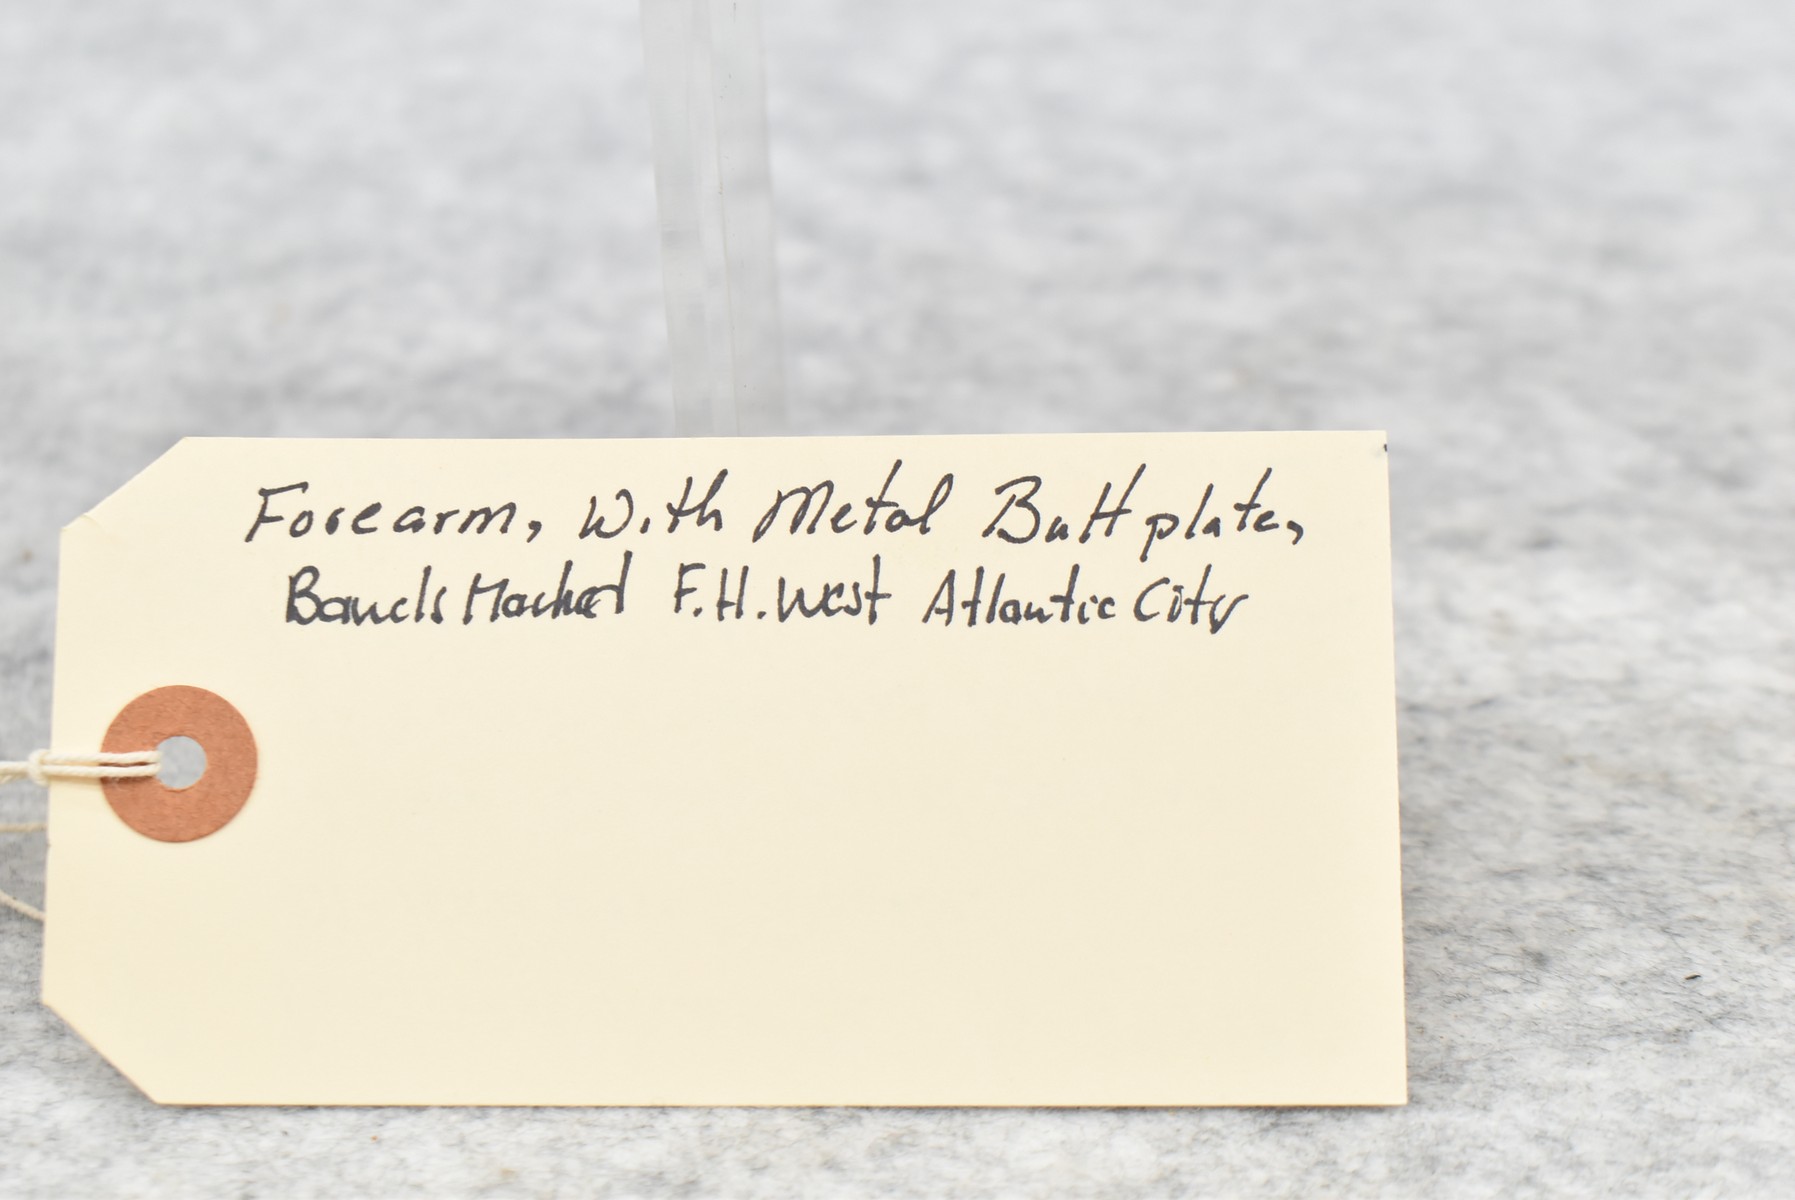 Forearm, With Metal Buttplate,
Bands Marked F.H. West Atlantic City